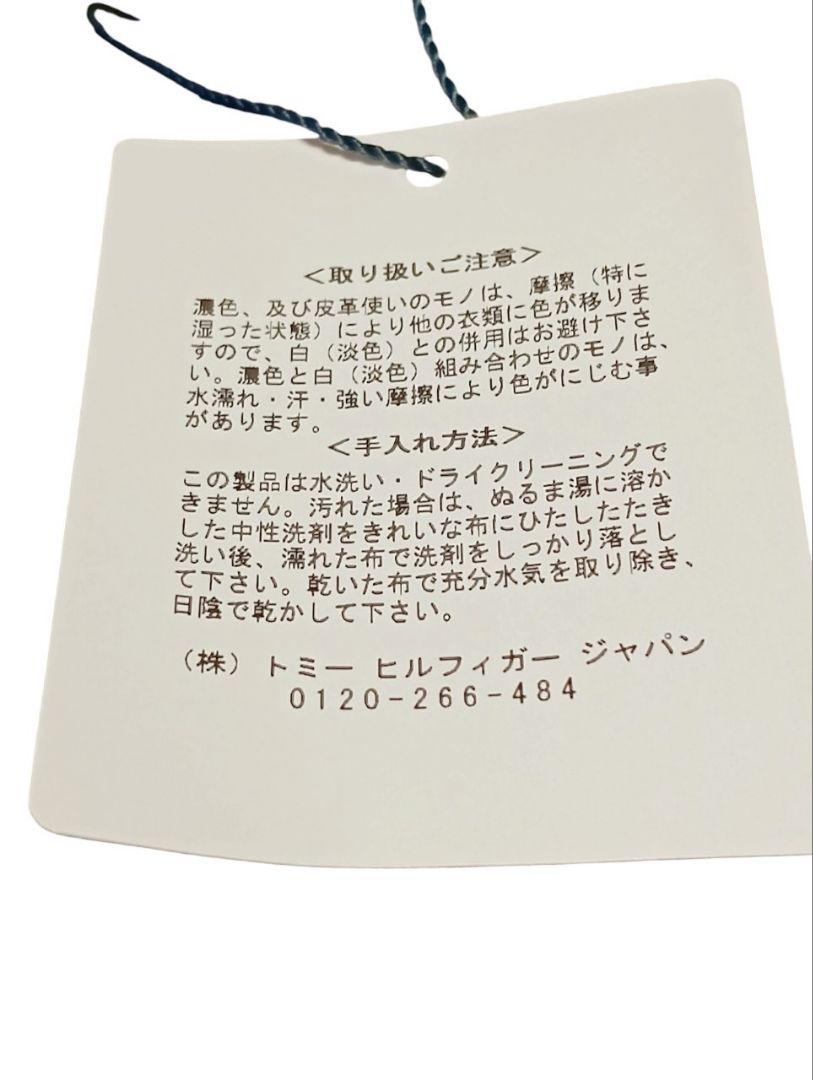 ＜取り扱いご注意＞
濃色、及び皮革使いのモノは、摩擦（特に
湿った状態）により他の衣類に色が移りま
すので、白（淡色）との併用はお避け下さ
い。濃色と白（淡色）組み合わせのモノは、
水濡れ・汗・強い摩擦により色がにじむ事
があります。
＜手入れ方法＞
この製品は水洗い・ドライクリーニングで
きません。汚れた場合は、ぬるま湯に溶か
した中性洗剤をきれいな布にひたしたたき
洗い後、濡れた布で洗剤をしっかり落とし
て下さい。乾いた布で充分水気を取り除き、
日陰で乾かして下さい。
（株）トミー ヒルフィガー ジャパン
0120-266-484